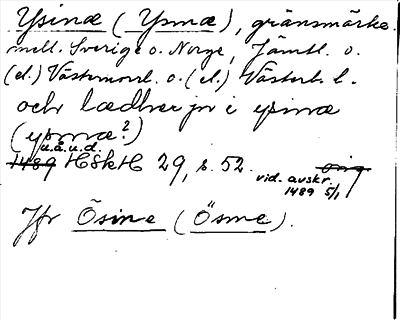 Ysinæ (Ysmæ), gränsmärke
mell. Sverige o. Norge, Jämtl. o.
(el.) Västernorrl. o. (el.) Västerb. l.
och lædher jn i ysinæ
(ysmæ?)
u.å.u.d.
1489 HSkH 29, s. 52. orig
vid. avskr.
1489 5/1
Jfr Ösine (Ösme).